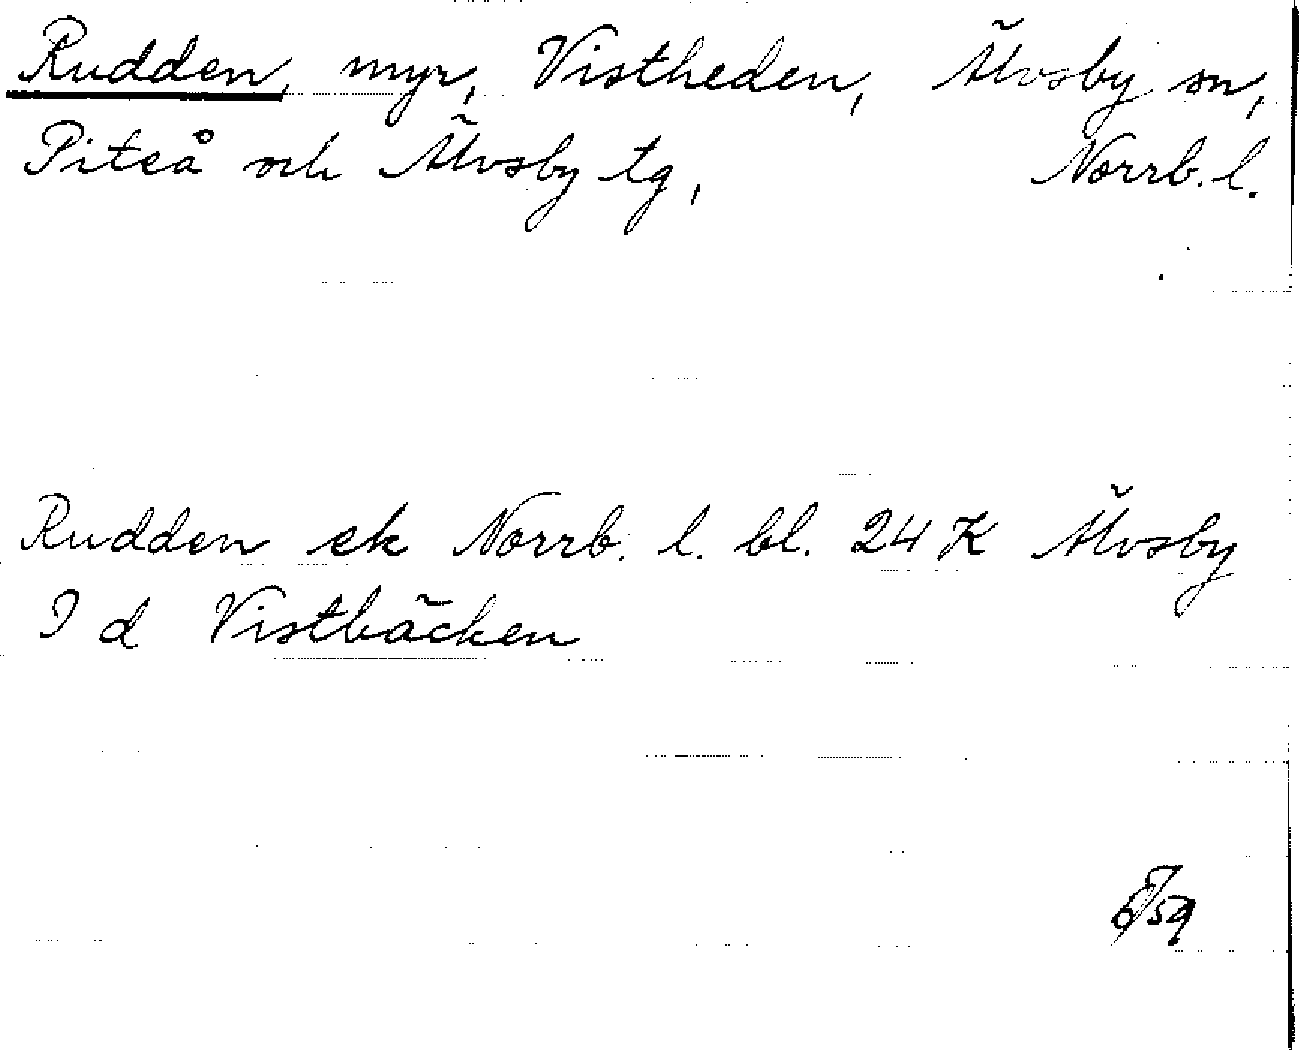 Rudden, myr, Vistheden, Älvsby sn,
Piteå och Älvsby tg, Norrb. l.
Rudden ek Norrb. l. bl. 24 K Älvsby
I d Vistbäcken